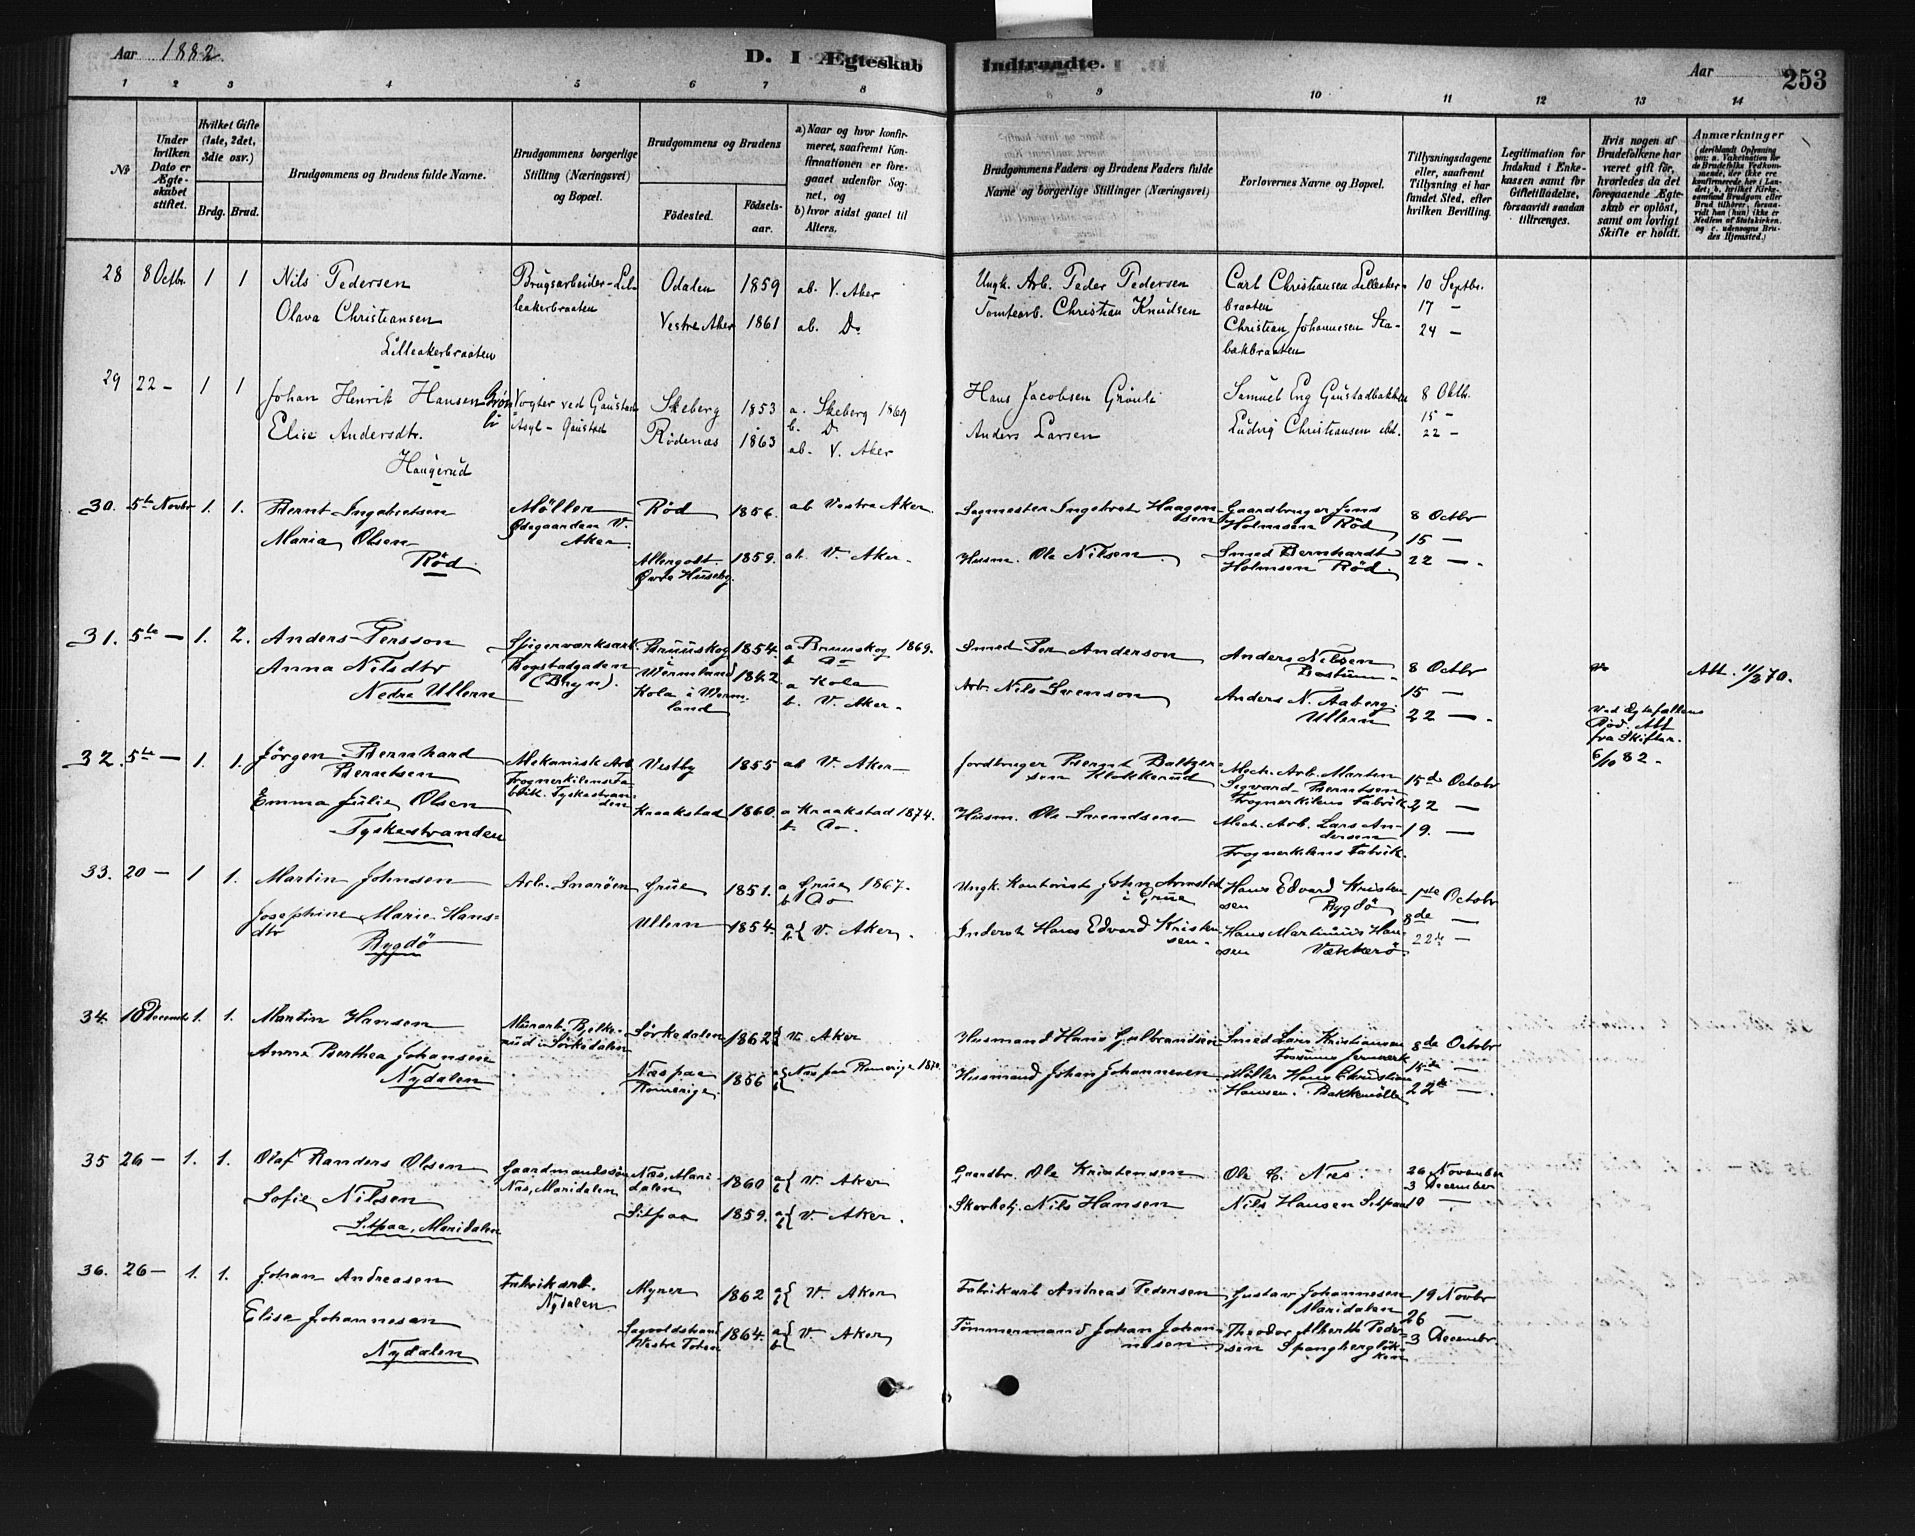 Aar 1882.
D. I Ægteskab Indtraadte.
Aar
253
1 2 3 4 5 6 7 8 9 10 11 12 13 14
№
Under hvilken Dato er Ægteskabet stiftet.
Hvilket Gifte (1ste, 2det, 3die osv.)
Brdg. Brud.
Brudgommens og Brudens fulde Navne.
Brudgommens borgerlige Stilling (Næringsvei) og Bopæl.
Brudgommens og Brudens
Födested.
Födselsaar.
a) Naar og hvor konfirmeret, saafremt Konfirmationen er foregaaet udenfor Sognet, og
b) hvor sidst gaaet til Alters.
Brudgommens Faders og Brudens Faders fulde Navne og borgerlige Stillinger (Næringsvei)
Forlovernes Navne og Bopæl.
Tillysningsdagene eller, saafremt Tillysning ei har fundet Sted, efter hvilken Bevilling.
Legitimation for Indskud i Enkekassen samt for Giftetilladelse, forsaavidt saadan tiltrænges.
Hvis nogen af Brudefolkene har været gift för, hvorledes da det foregaaende Ægteskab er oplöst, samt om lovligt Skifte er holdt.
Anmærkninger
28 8 Octbr. 1 1 Nils Pedersen
Olava Christiansen
Lilleakerbraaten
Brugsarbeider - Lilleakerbraaten
Odalen 1859 ab. V. Aker
Vestre Aker 1861 ab. Do
Ungk. Arb. Peder Pedersen
Tomtearb. Christian Knudsen
Carl Christiansen Lilleakerbraaten
Christian Johannesen Stabækbraaten
10 Septbr.
17 —
24 —
29 22 — 1 1 Johan Henrik Hansen Grönli
Elise Andersdtr.
Haugerud
Vogter ved Gaustad Asyl - Gaustad
Skeberg 1853 a. Skeberg 1869
b. D
Rödenæs 1863 ab. V. Aker
Hans Jacobsen Grönli
Anders Larsen
Samuel Eng Gaustadbakken
Ludvig Christiansen ibd.
8 Oktb.
15 —
22 —
30. 5te Novbr 1. 1. Bernt Ingebretsen
Maria Olsen
Röd
Möller
Ödegaarden V. Aker
Röd 1856. ab Vestre Aker.
Allergodt Övre Huseby. 1859. ab. V. Aker.
Sagmester Ingebret Haagensen
Husm. Ole Nilsen
Gaardbruger Jens Holmsen Röd
Smed Bernhardt Holmsen Röd
8 Octbr
15 —
22 —.
31. 5te — 1. 2. Anders Persson
Anna Nilsdtr
Nedre Ullern
Spigerværksarb. Bogstadgaden (Bryn).
Brunskog Wermland 1854. a Brunskog 1869.
b do
Kola i Wermland 1842 a Kola
b. V. Aker.
Smed Per Anderson
Arb. Nils Svenson
Anders Nilsen Bestum
Anders N. Aaberg Ullern
8 Octbr
15 —
22 —.
Ved Ægtefællens Död. Att fra Skifter. 6/10 82.
Att. 11/2 70.
32. 5te — 1. 1. Jörgen Bernhard Berntsen
Emma Julie Olsen
Tyskestranden
Mekanisk Arb. Frognerkilens Fabrik. Tyskestranden
Vestby 1855 ab V. Aker
Kraakstad 1860. a Kraakstad 1874.
b. do.
Jordbruger Bernt Baltzersen Klokkerud
Husm. Ole Svendsen
Mech. Arb. Martin Sigvard Berntsen Frognerkilens Fabrik
Mech. Arb. Lars Andersen Frognerkilens Fabrik.
15de Octobr
22 —
19. —
33. 20 — 1 1. Martin Johnsen
Josephine Marie Hansdtr
Bygdö
Arb. Snaröen
Grue 1851. a Grue 1867.
b do
Ullern 1854. a b { V. Aker.
Ungk. Kontorist John Arnsted i Grue
Inderst Hans Edvard Kristensen.
Hans Edvard Kristensen Bygdö
Hans Martinius Hansen Vækkerö.
1ste Octobr
8de —
22de —
34. 10 Decembr 1. 1. Martin Hansen
Anna Berthea Johansen
Nydalen
Murarb. Bjelkerud i Sörkedalen
Sörkedalen 1862 V. Aker
Næs paa Romerige. 1856 a b { Næs paa Romerige
Husmand Hans Gulbrandsen
Husmand Johan Johannesen
Smed Lars Kristiansen Fossums Jernværk
Möller Hans Christian Hansen. Bakkemölle
8de Octobr
15de —
22de —.
35 26 — 1. 1. Olaf Randers Olsen
Sofie Nilsen
Sitpaa, Maridalen
Gaardmandssön Næs, Maridalen
Næs, Maridalen 1860 a b { V. Aker
Sitpaa 1859. a b { V. Aker.
Gaardbr. Ole Kristensen
Nils Hansen
Ole C. Næs.
Nils Hansen Sitpaa
26 November
3 December
10 —
36. 26 — 1. 1. Johan Andreasen
Elise Johannesen
Nydalen
Fabrikarb. Nydalen
Myrer 1862 a b { V. Aker
Vestre Toten 1864. a b { V. Aker
Fabrikarb Andreas Pedersen
Tömmermand Johan Johannesen
Gustav Johannesen Maridalen
Theodor Alberth Pedersen Spangberglökken
19 Novbr
26 —
3 Decembr